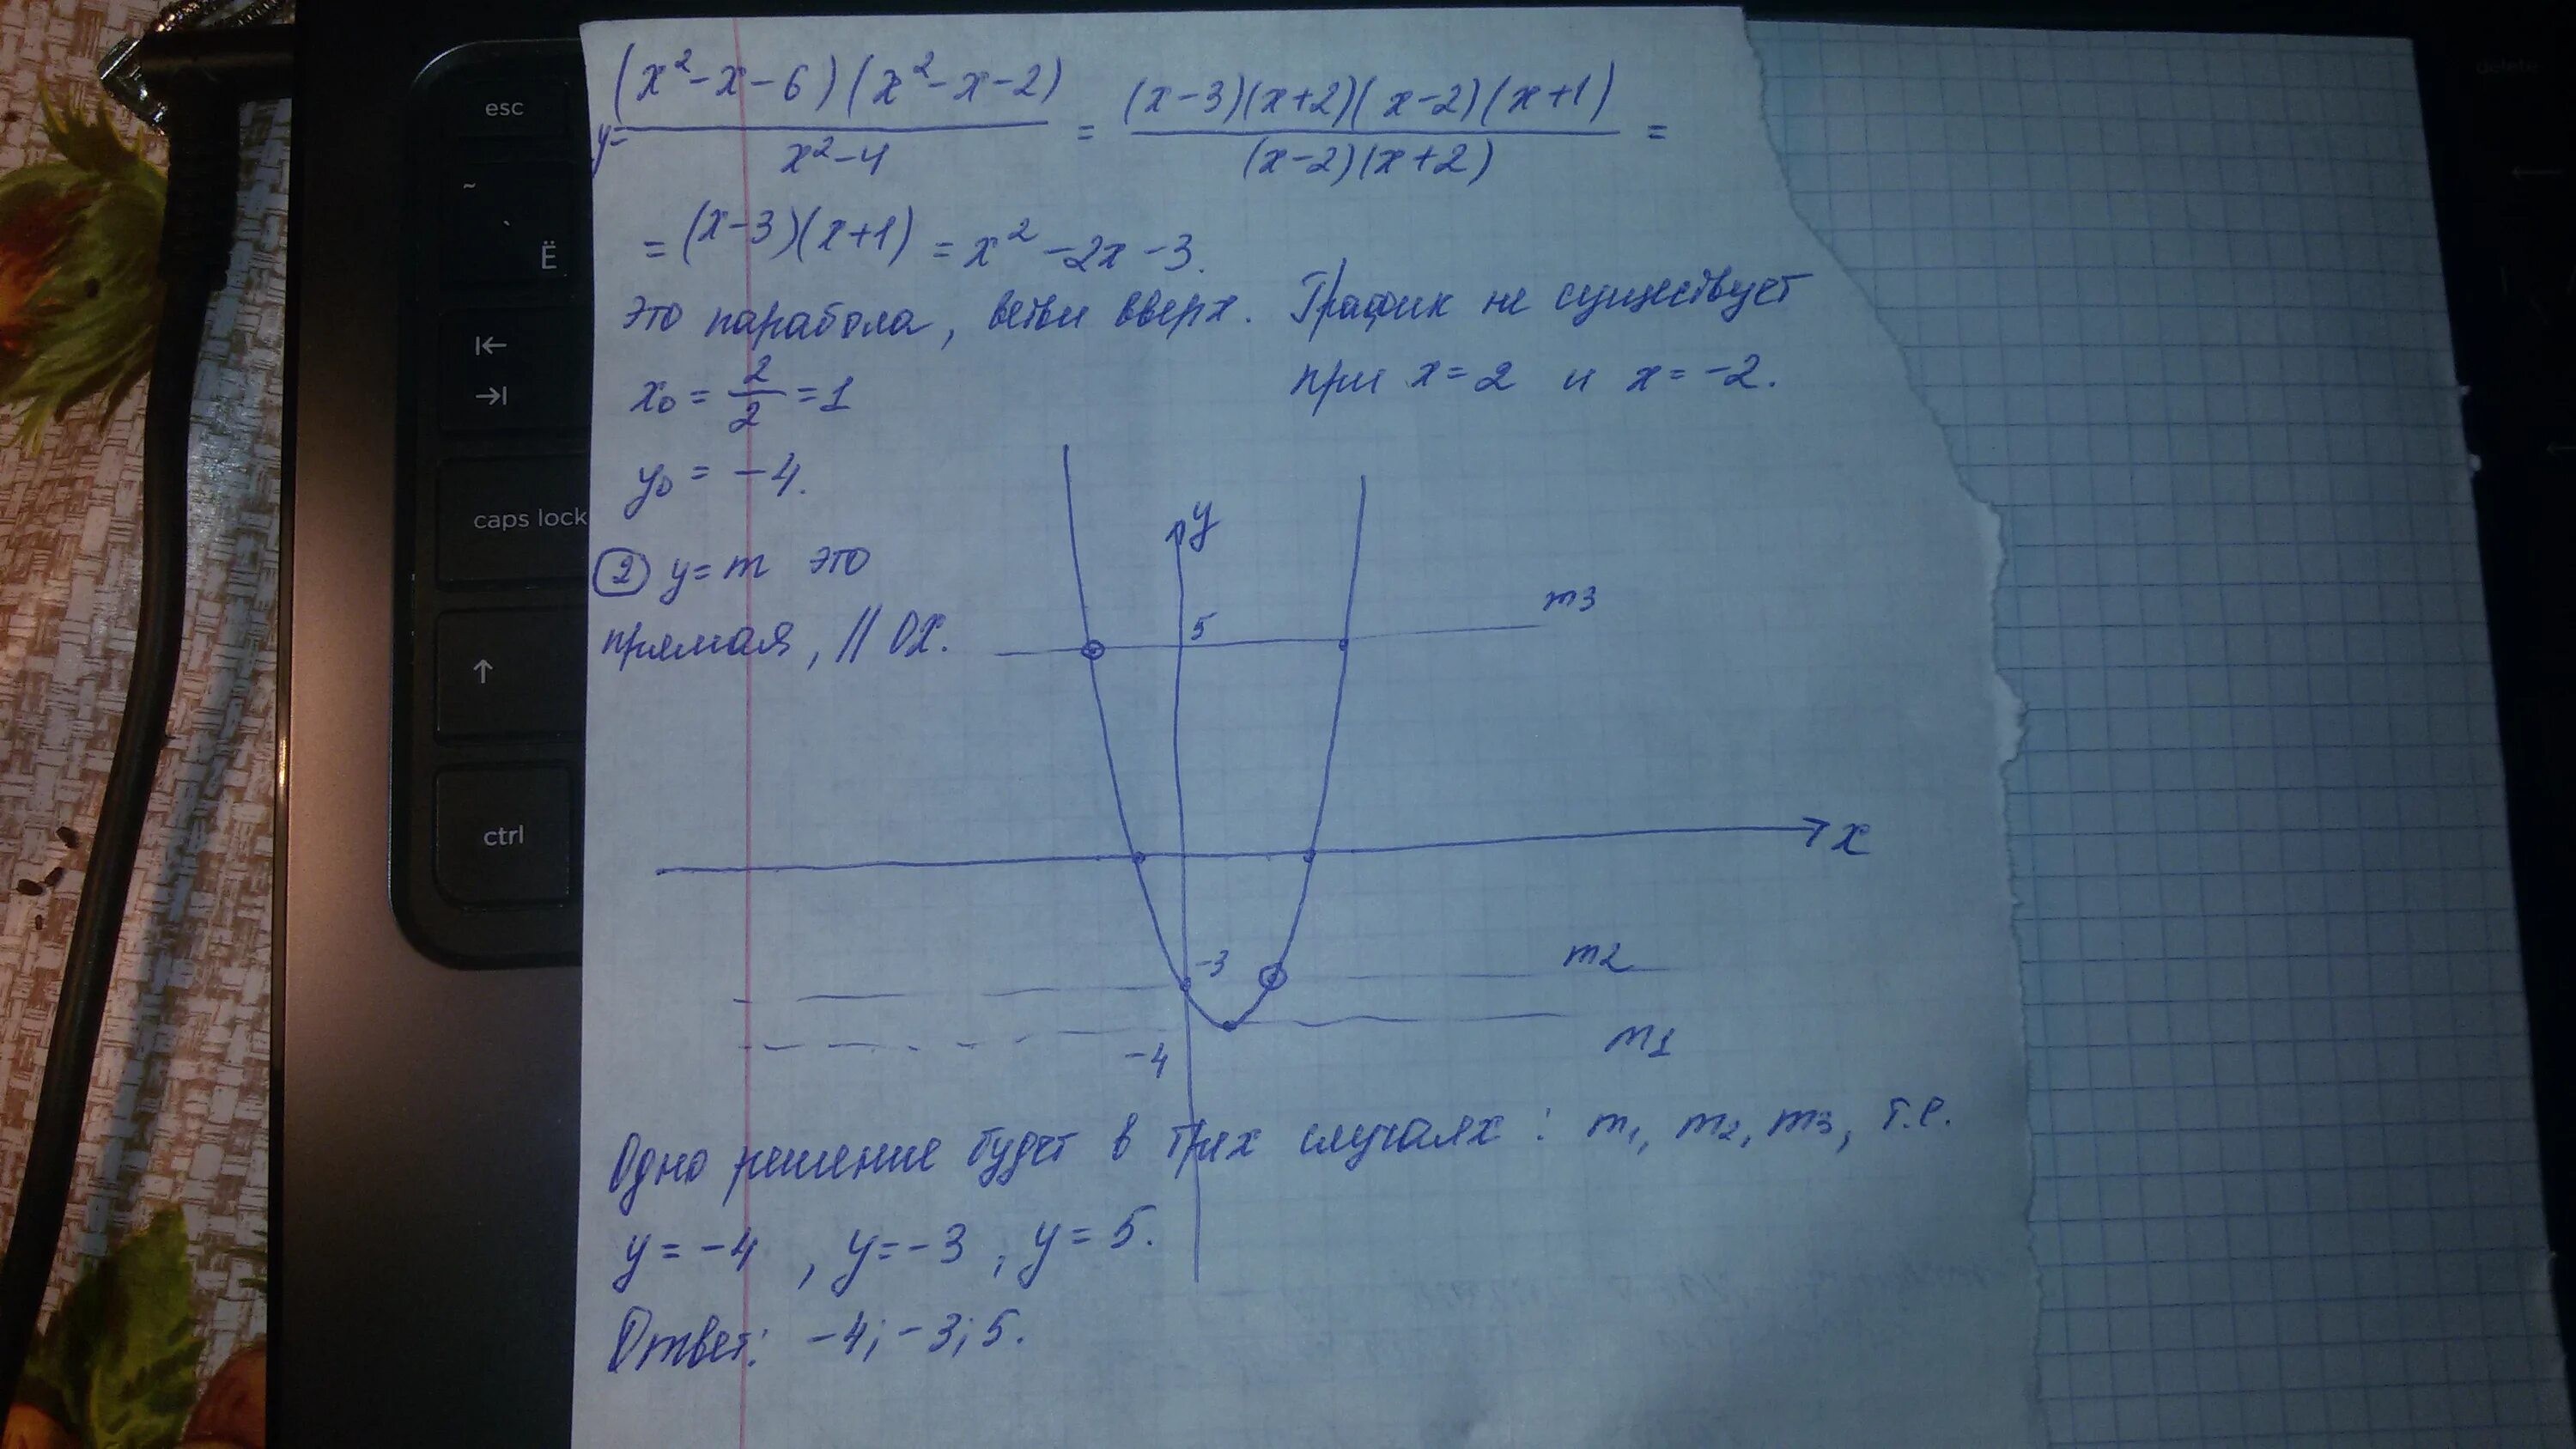 y= (x²-x-6)(x²-x-2) / x²-4 = (x-3)(x+2)(x-2)(x+1) / (x-2)(x+2) =
= (x-3)(x+1) = x²-2x-3.
это парабола, ветви вверх. График не существует
при x=2 и x=-2.
x₀ = 2/2 = 1
y₀ = -4.
② y=m это
прямая, // OX.
y
5
m3
x
-3
m2
-4
m1
Одно решение будет в трех случаях: m₁, m₂, m₃, т.е.
y=-4, y=-3, y=5.
Ответ: -4; -3; 5.
esc
~
`
Ё
caps lock
ctrl
delete